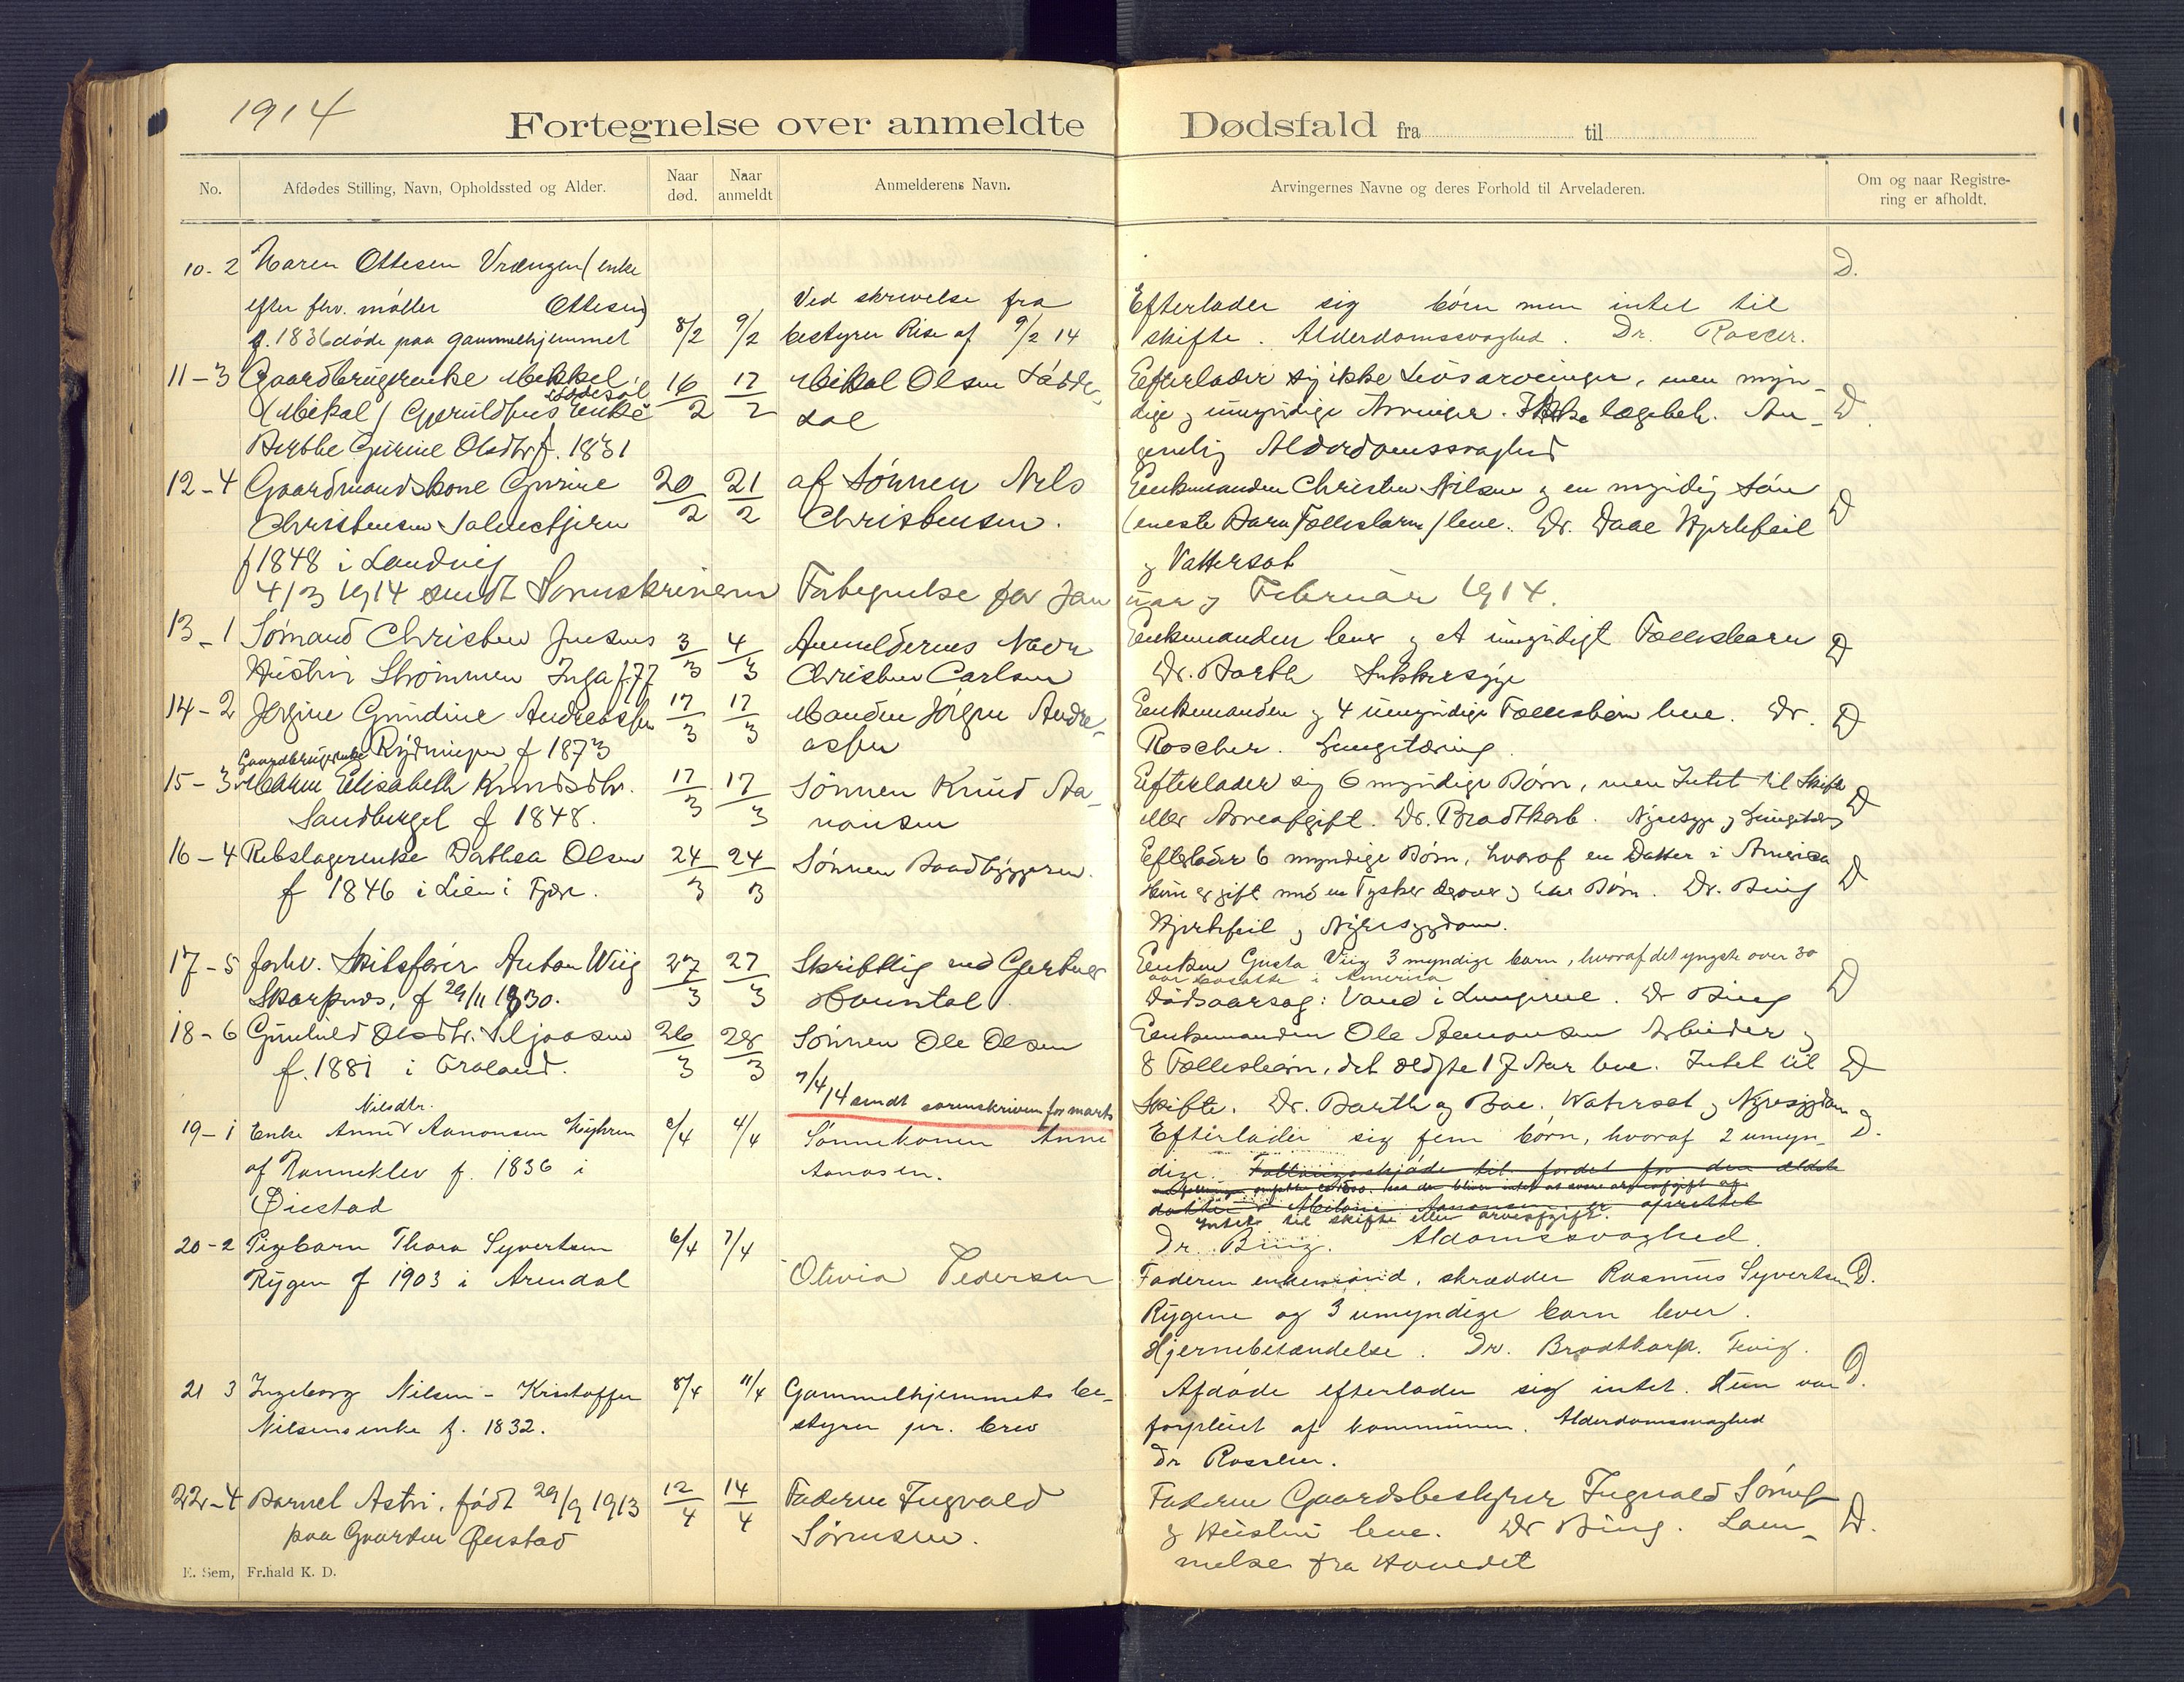 1914
Fortegnelse over anmeldte Dødsfald fra til
No.
Afdødes Stilling, Navn, Opholdssted og Alder.
Naar død.
Naar anmeldt
Anmelderens Navn.
Arvingernes Navne og deres Forhold til Arveladeren.
Om og naar Registrering er afholdt.
10-2 Maren Ottesen Vrængen (enke
efter fhv. møller Ottesen)
f. 1836 døde paa gammelhjemmet 8/2 9/2
Ved skrivelse fra
bestyrer Rise af 9/2 14
Efterlader sig børn men intet til
skifte. Alderdomssvaghed. Dr. Roscher.
D.
11-3 Gaardbrugerenke Mekkel
(Mikal) Gjeruldsens Enke
Berthe Gurine Olsdtr f. 1831
16/2 17/2
Mikal Olsen
dal
Efterlader sig ikke Livsarvinger, men myn-
dige og umyndige Arvinger. Ikke lægebeh. An-
givelig Alderdomssvaghed
D.
12-4 Gaardmandskone Gurine
Christensen
f 1848 i Landvig
20/2 21/2
af Sønnen Nils
Christensen.
Enkemanden Christen Nilsen og en myndig Søn
(eneste Barn Fællesbarn) leve. Dr. Daae Hjertefeil
og Vattersot
D
4/3 1914 sendt Sorenskriveren Fortegnelse for Januar og Februar 1914.
13-1 Sømand Christen Jensens
Hustru Strømmen Inga f. 77
3/3 4/3
Anmelderens Navn
Christen Carlsen
Enkemanden lever og et umyndigt Fællesbarn
Dr. Barth Sukkersyge
D
14-2 Jørgine Gundine Andreassen
Rydningen f 1873
17/3 17/3
Manden Jørgen Andre-
assen
Enkemanden og 4 umyndige Fællesbørn leve. Dr.
Roscher. Lungetæring.
D
Gaardbrugerenke
15-3 Maren Elisabeth Knudsdtr.
Sandberget f 1848.
17/3 17/3
Sønnen Knud Aa-
nonsen
Efterlader sig 6 myndige Børn, men Intet til Skifte
eller Arveafgift. Dr. Brodtkorb. Nyresyge og Lungetæring
D
16-4 Rebslagerenke Dorthea Olsen
f 1846 i Lien i Fjære.
24/3 24/3
Sønnen Baadbyggeren.
Efterlader 6 myndige Børn, hvoraf en Datter i America
Hun er gift med en Tysker derover og har Børn. Dr. Bing
Hjertefeil og Nyresygdom.
D
17-5 forhv. Skibsfører Anton Wiig
Skarpnes, f 29/11 1830.
27/3 27/3
Skriftlig ved Gjertner
Enken Gusta Viig 3 myndige barn, hvoraf det yngste over 30
aar bosatte i America
Dødsaarsag: Vand i Lungerne. Dr Bing
D
18-6 Gunhild Olsdtr.
f. 1881 i Froland.
26/3 28/3
Sønnen Ole Olsen
Enkemanden Ole Aamonsen Arbeider og
8 Fællesbørn, det ældste 17 Aar leve. Intet til
Skifte. Dr. Barth og Boe. Vatersot og Nyresygdom
D
7/4 14 sendt sorenskriveren for marts
Nilsdtr.
19-1 Enke Anne Aanonsen
af Ranneklev f. 1836 i
Øiestad
2/4 4/4
Sønnekonen Anne
Aanosen.
Efterlader sig fem børn, hvoraf 2 umyn-
dige.
Intet til skifte eller arveafgift.
Dr. Bing. Aldomssvaghed.
D.
20-2 Pigebarn Thora Syvertsen
Rygen f 1903 i Arendal
6/4 7/4
Olivia Pedersen
Faderen enkemand, skrædder Rasmus Syvertsen
Rygene og 3 umyndige barn lever.
Hjernebetændelse. Dr. Brodtkorp.
D.
21 3 Ingeborg Nilsen - Kristoffer
Nilsens enke f. 1832.
8/4 11/4
Gammelhjemmets be-
styrer pr. brev
Afdøde efterlader sig intet. Hun var
forpleiet af kommunen. Alderdomssvaghed
Dr Roscher.
D.
22-4 Barnet Astri, født 29/9 1913
paa Gaarden Øiestad
12/4 14/4
Faderen Ingvald
Sørensen.
Faderen Gaardsbestyrer Ingvald Sørensen
og Hustru leve. Dr Bing. Lam-
melse fra Hovedet
D.
E. Sem, Fr.hald K. D.